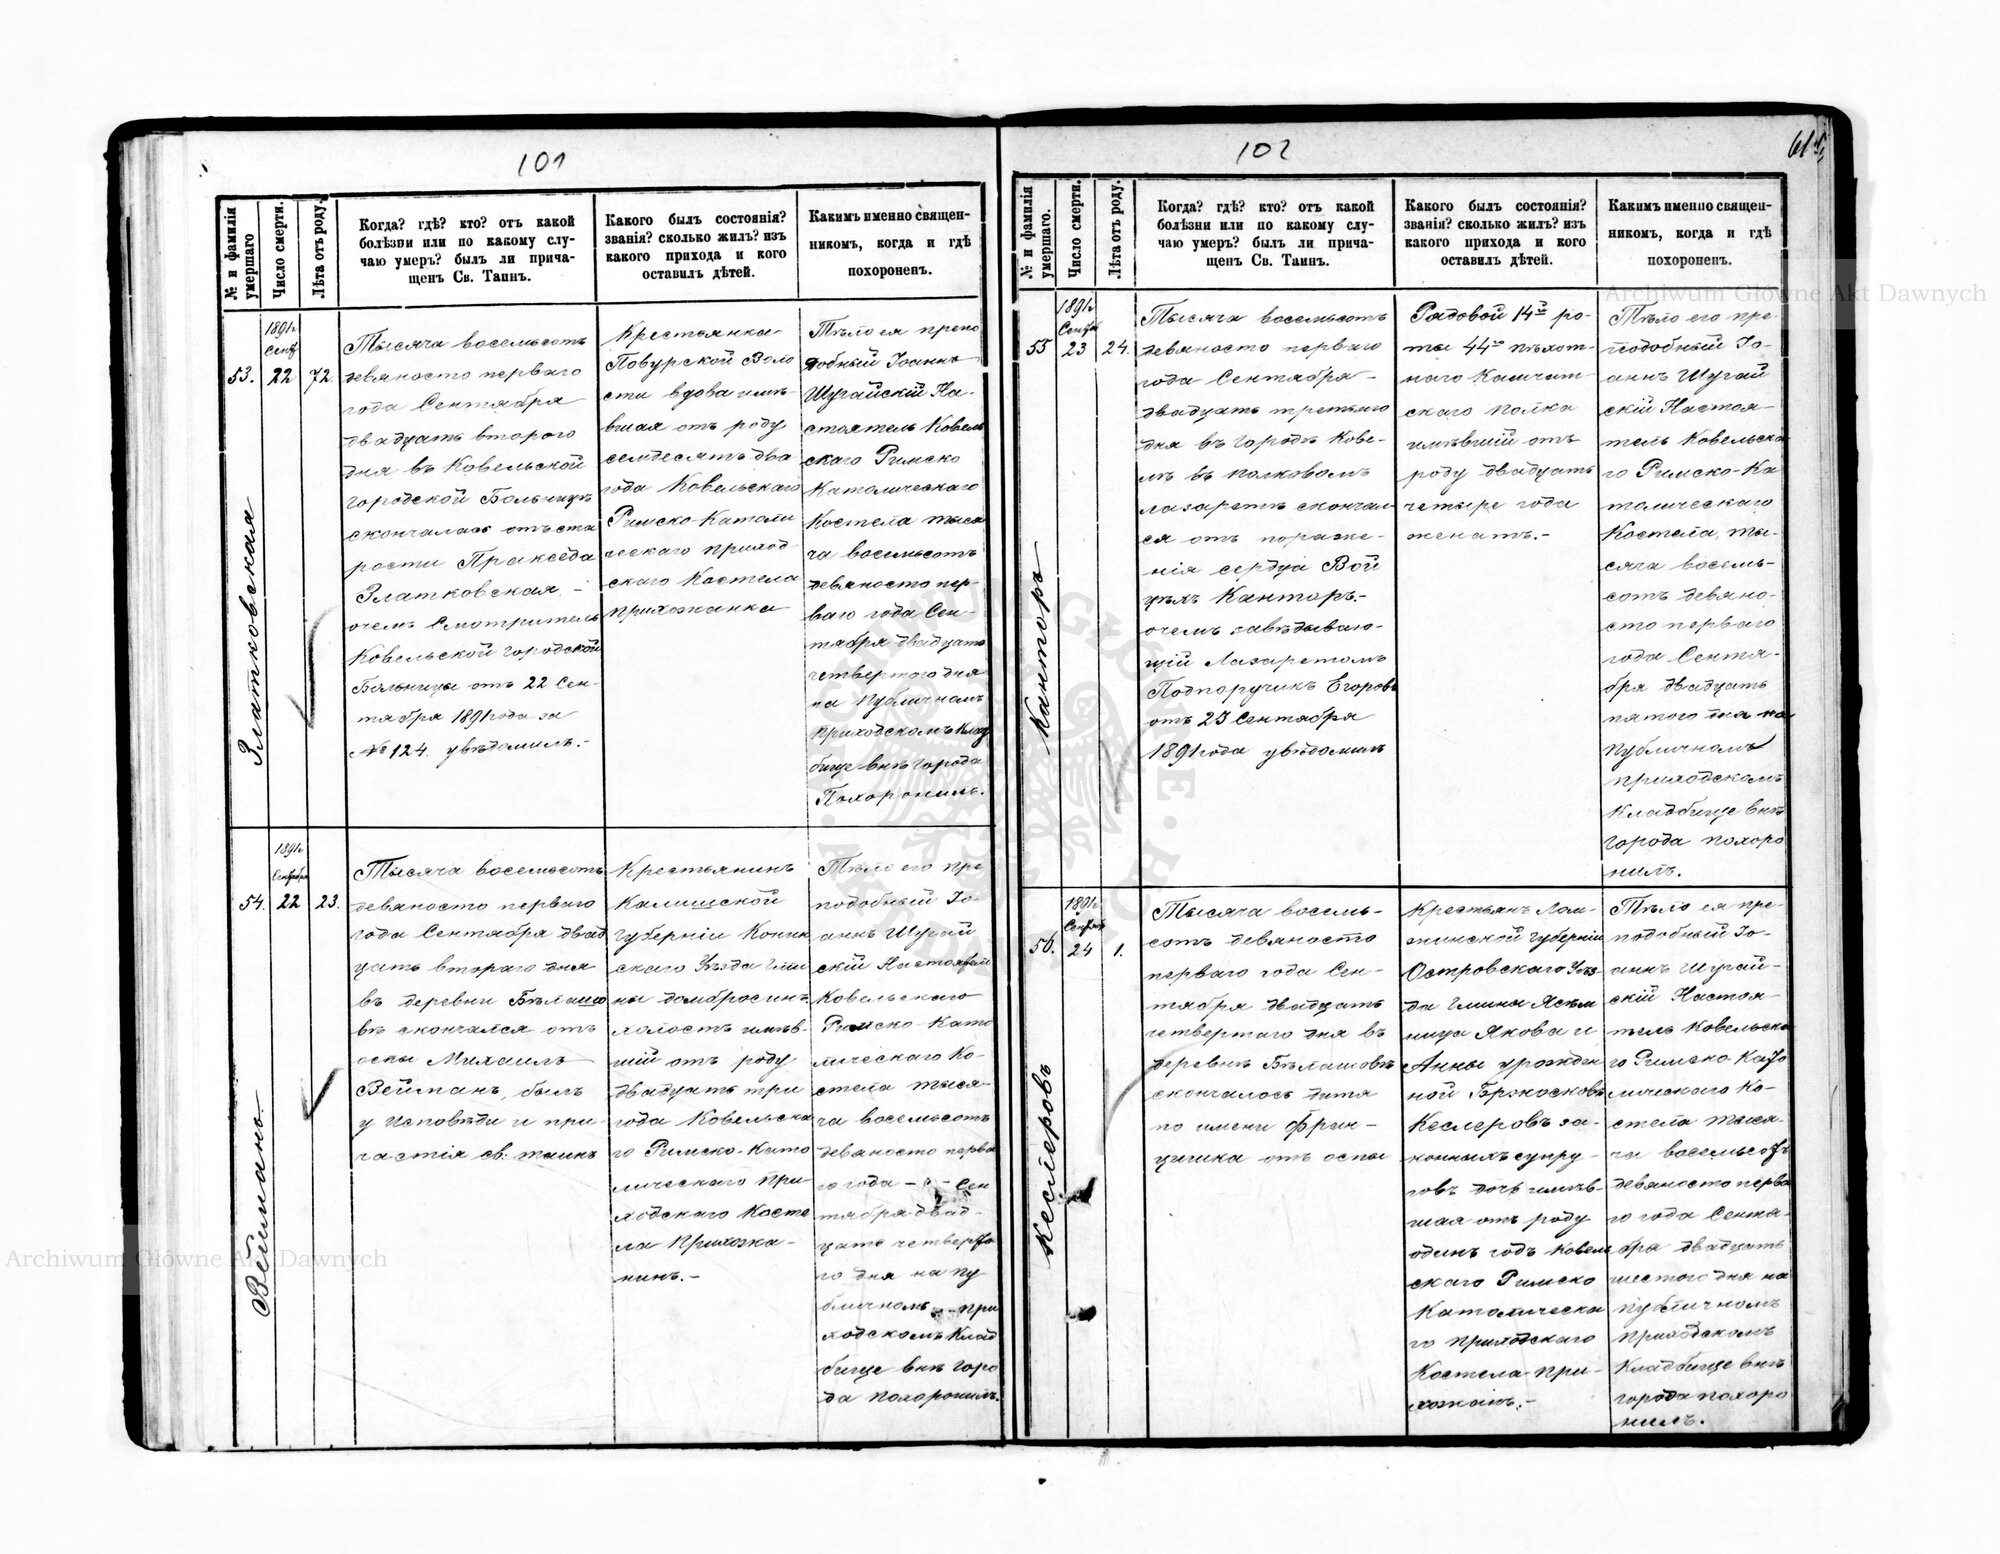 101
№ и фамилія умершаго
Число смерти.
Лѣта отъ роду.
Когда? гдѣ? кто? отъ какой
болѣзни или по какому слу-
чаю умеръ? былъ ли прича-
щенъ Св. Таинъ.
Какого былъ состоянія?
званія? сколько жилъ? изъ
какого прихода и кого
оставилъ дѣтей.
Какимъ именно священ-
никомъ, когда и гдѣ
похороненъ.
53.
Златковская
1891г
Сент
22
72.
Тысяча восемьсотъ
девяносто перваго
года Сентября
двадцать второго
дня въ Ковельской
городской Больницѣ
скончалась отъ ста
рости Пракседа
Златковская, -
очемъ Смотритель
Ковельской городской
Больницы отъ 22 Сен-
тября 1891 года за
№ 124. увѣдомилъ.-
Крестьянка
Повурской Воло
сти вдова имѣ-
вшая отъ роду
семдесятъ два
года Ковельскаго
Римско-Католи
ческаго приход-
скаго Костела
прихожанка
Тѣло ея препо
добный Іоаннъ
Шугайскій На-
стоятель Ковель
скаго Римско
Католическаго
Костела тыся
ча восемьсотъ
девяносто пер-
ваго года Сен-
тября двадцать
четвертого дня
на Публичномъ
приходскомъ Клад
бище внѣ города
Похоронилъ.
54.
Вейманъ.
1891г
Сентября
22
23.
Тысяча восемьсотъ
девяносто перваго
года Сентября двад
цать второго дня
въ деревни Бѣлашо
вѣ скончался отъ
оспы Михаилъ
Вейманъ, былъ
у исповѣди и при-
частія св. таинъ
Крестьянинъ
Калишской
губерніи Конин
скаго Уѣзда Гми
ны домбросин
холостъ имѣв-
шій отъ роду
двадцать три
года Ковельска
го Римско-Като
лическаго При-
ходскаго Косте
ла Прихожа-
нинъ.-
Тѣло его пре
подобный Іо-
аннъ Шугай
скій Настоятель
Ковельскаго
Римско Като
лическаго Ко-
стела тыся-
ча восемьсотъ
девяносто перва
го года - - Сен
тября двад-
цать четверто
го дня на пу
бличномъ при
ходскомъ Клад
бище внѣ горо
да похоронилъ.
102
61
№ и фамилія умершаго.
Число смерти.
Лѣта отъ роду.
Когда? гдѣ? кто? отъ какой
болѣзни или по какому слу-
чаю умеръ? былъ ли прича-
щенъ Св. Таинъ.
Какого былъ состоянія?
званія? сколько жилъ? изъ
какого прихода и кого
оставилъ дѣтей.
Какимъ именно священ-
никомъ, когда и гдѣ
похороненъ.
55
Канторъ
1891г
Сентяб
23
24.
Тысяча восемьсотъ
девяносто перваго
года Сентября -
двадцать третьяго
дня въ городѣ Кове-
лѣ въ полковомъ
лазаретѣ скончал-
ся отъ пораже-
нія сердца Вой
цѣхъ Канторъ.-
очемъ завѣдываю-
щій Лазаретомъ
Подпоручикъ Егоровъ
отъ 25 Сентября
1891 года увѣдомилъ
Рядовой 14й ро-
ты 44го пѣхот-
наго Камчат-
скаго полка
имѣвшій отъ
роду двадцать
четыре года
женатъ.-
Тѣло его пре-
подобный Іо-
аннъ Шугай
скій Настоя-
тель Ковельска
го Римско-Ка
толическаго
Костела, ты-
сяча восемь-
сотъ девяно-
сто перваго
года Сентя-
бря двадцать
пятого дня на
публичномъ
приходскомъ
Кладбище внѣ
города похоро
нилъ.
56.
Кеслеровъ
1891г
Сентяб
24
1.
Тысяча восемь-
сотъ девяносто
перваго года Сен-
тября двадцать
четвертаго дня въ
деревнѣ Бѣлашовѣ
скончалось дитя
по имени Фран-
цишка отъ оспы
Крестьянъ Лом-
жинской губерніи
Островскаго Уѣз-
да Гмины Ясѣн
ница Якова и
Анны урожден
ной
Кеслеровъ за-
конныхъ супру-
говъ дочь имѣв-
шая отъ роду
одинъ годъ Ковель
скаго Римско
Католическа
го приходскаго
Костела при-
хожанъ.-
Тѣло ея пре-
подобный Іо-
аннъ Шугай-
скій Настоя-
тель Ковельска
го Римско Като
лическаго Ко-
стела тыся-
ча восемьсотъ
девяносто перва
го года Сентя-
бря двадцать
шестого дня на
публичномъ
приходскомъ
Кладбище внѣ
города похоро
нилъ.
Archiwum Główne Akt Dawnych
Archiwum Główne Akt Dawnych